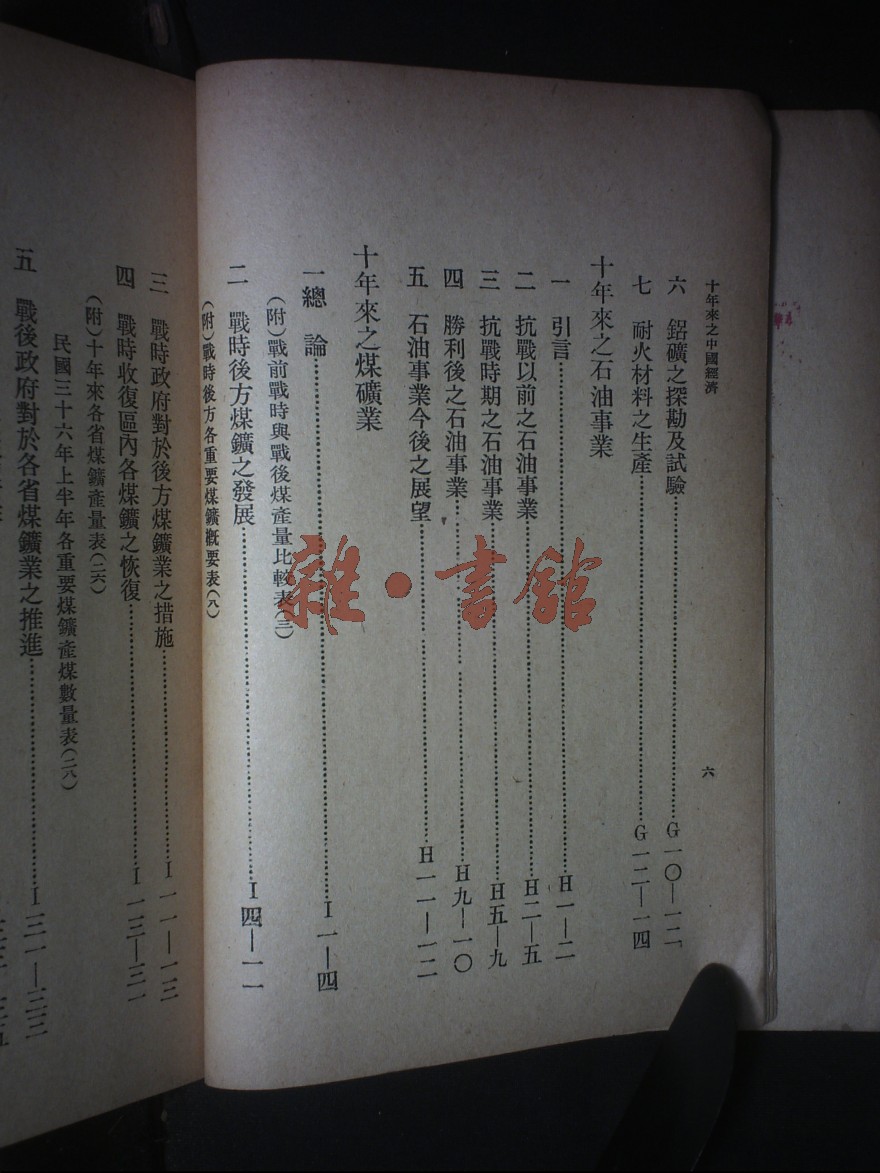 十年來之中國經濟
六
六　鋁礦之探勘及試驗……G一〇—一二
七　耐火材料之生產……G一二—一四
十年來之石油事業
一　引言……H一—二
二　抗戰以前之石油事業……H二—五
三　抗戰時期之石油事業……H五—九
四　勝利後之石油事業……H九—一〇
五　石油事業今後之展望……H一一—一二
十年來之煤礦業
一總　論……I一—四
（附）戰前戰時與戰後煤產量比較表（三）
二　戰時後方煤鑛之發展……I四—一一
（附）戰時後方各重要煤鑛概要表（八）
三　戰時政府對於後方煤鑛業之措施……I一一—一三
四　戰時收復區內各煤鑛之恢復……I一三—三一
（附）十年來各省煤鑛產量表（二六）
民國三十六年上半年各重要煤鑛產煤數量表（二八）
五　戰後政府對於各省煤鑛業之推進……I三一—三三
雜·書館